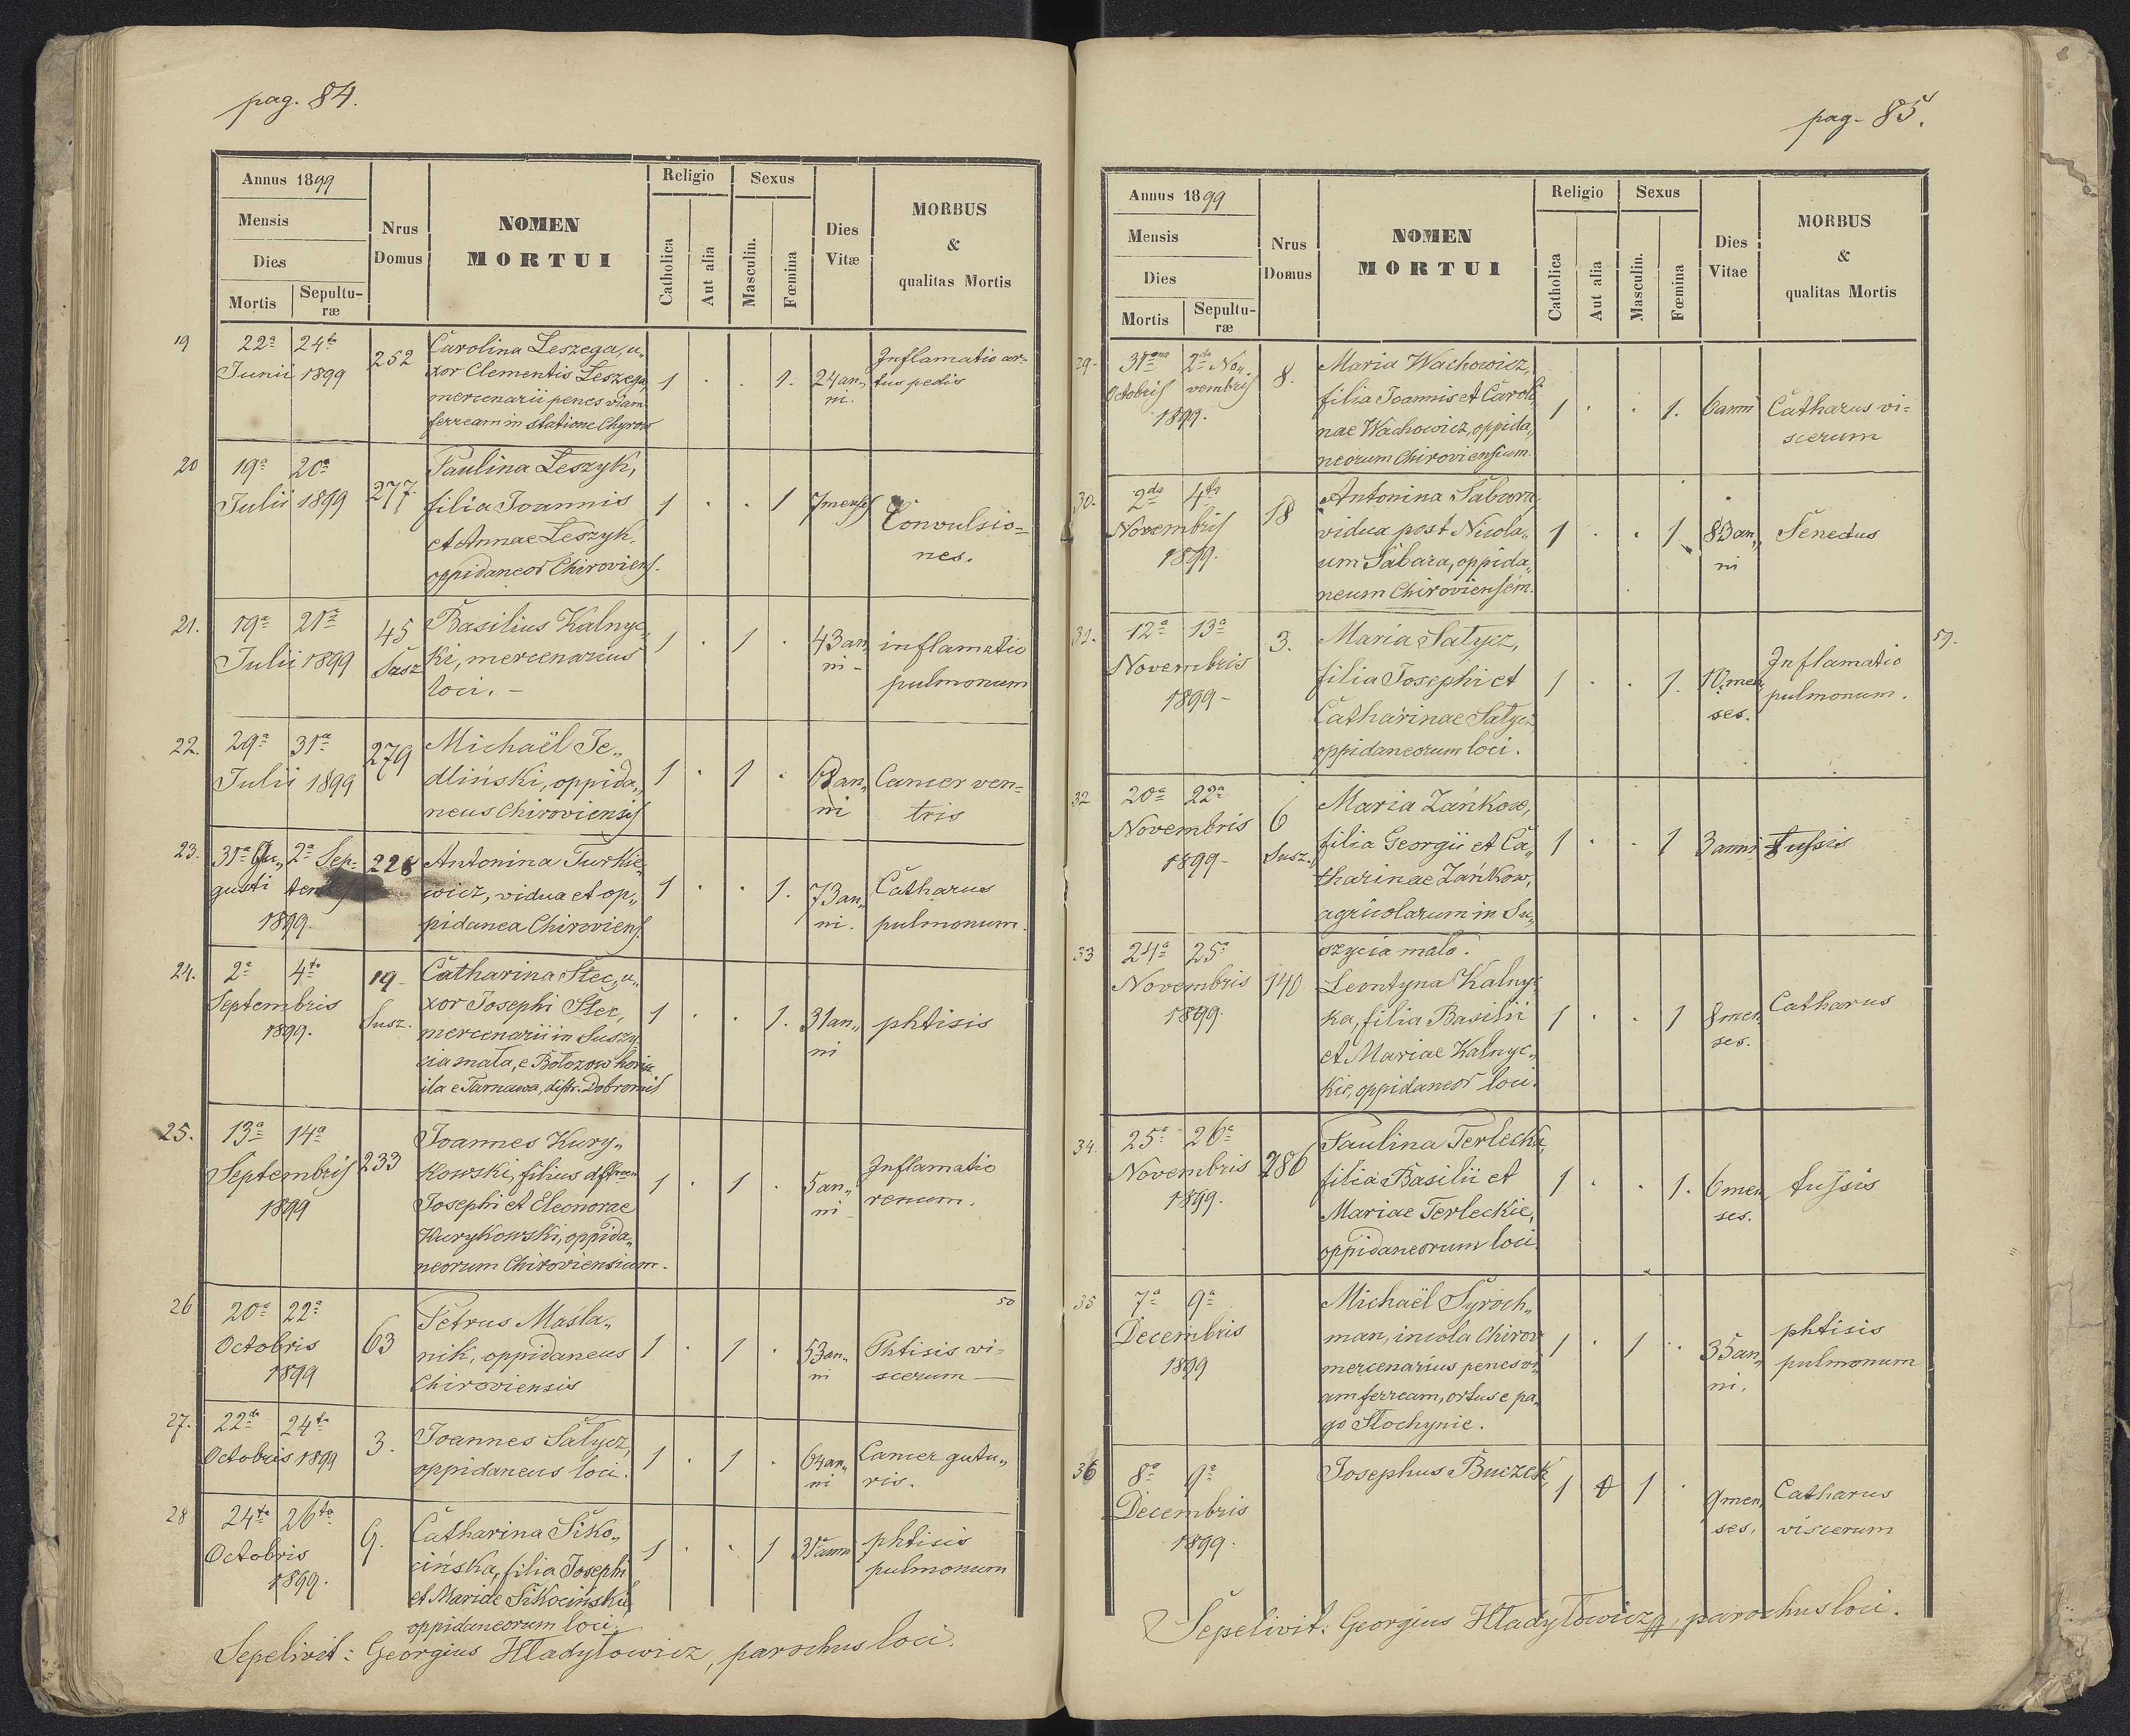 pag. 84.
Annus 1899
Mensis
Dies
Mortis
Sepultu-
ræ
Nrus
Domus
NOMEN
MORTUI
Religio
Catholica
Aut alia
Sexus
Masculin.
Fœmina
Dies
Vitæ
MORBUS
&
qualitas Mortis
19
22a 24ta
Junii 1899
252
Carolina Leszega, u„
xor Clementis Leszega,
mercenarii penes viam
ferream in statione Chyrow
1 . . 1.
24 an„
ni.
Inflamatio ar-
tus pedis
20
19a 20a
Julii 1899
277.
Paulina Leszyk,
filia Joannis
et Annae Leszyk,
oppidaneor Chiroviens.
1 . . 1
7 menses
Convulsio-
nes.
21.
19a 21a
Julii 1899
45
Susz
Basilius Kalnyc„
ki, mercenarius
loci. –
1 . 1 .
43 an„
ni –
inflamatio
pulmonum
22.
29a 31a
Julii 1899
279
Michaël Je„
dliński, oppida„
neus Chiroviensis
1 . 1 .
68 an„
ni
Cancer ven-
tris
23.
31a Au„ 2a Sep-
gusti
1899.
228
Antonina Turkie„
wicz, vidua et op„
pidanea Chiroviens.
1 . . 1.
73 an„
ni.
Catharus
pulmonum.
24.
2a 4ta
Septembris
1899.
19
Susz.
Catharina Stec, u„
xor Josephi Stec,
mercenarii in Suszy-
cia mała, e Bołozow
e Tarnawa, distr. Dobromil
1 . . 1.
31 an„
ni
phtisis
25.
13a 14a
Septembris
1899
233
Joannes Kury„
kowski, filius
Josephi et Eleonorae
Kurykowski, oppida„
neorum Chiroviensium.
1 . 1 .
5 an„
ni
Inflamatio
renum.
26
20a 22a
Octobris
1899
63
Petrus Masla„
nik, oppidaneus
Chiroviensis
1 . 1 .
53 an„
ni
50
Phtisis vi-
scerum —
27.
22da 24ta
Octobris 1899
3.
Joannes Sałycz,
oppidaneus loci.
1 . 1 .
64 an„
ni
Cancer gutu„
ris.
28
24ta 26ta
Octobris
1899.
9.
Catharina Siko„
cińska, filia Josephi
et Mariae Sikocińskie,
oppidaneorum loci.
1 . . 1
31 anni
phtisis
pulmonum
Sepelivit: Georgius Hładyłowicz, parochus loci.
pag. 85.
Annus 1899
Mensis
Dies
Mortis
Sepultu-
ræ
Nrus
Domus
NOMEN
MORTUI
Religio
Catholica
Aut alia
Sexus
Masculin.
Fœmina
Dies
Vitae
MORBUS
&
qualitas Mortis
29-
31ma 2da No„
Octobris vembris
1899.
8.
Maria Wachowicz,
filia Joannis et Caroli„
nae Wachowicz, oppida„
neorum Chiroviensium.
1 . . 1.
6 anni
Catharus vi-
scerum
30.
2da 4ta
Novembris
1899.
18
Antonina Sabara,
vidua post Nicola„
um Sabara, oppida„
neum Chiroviensem.
1 . . 1
83 an„
ni
Senectus
31.
12a 13a
Novembris
1899 –
3.
Maria Sałycz,
filia Josephi et
Catharinae Sałycz
oppidaneorum loci.
1 . . 1.
10 men
ses.
Inflamatio
pulmonum.
59.
32
20a 22a
Novembris
1899 –
6
Susz.
Maria Zańkow,
filia Georgii et Ca„
tharinae Zańkow,
agricolarum in Su„
szycia mala.
1 . . 1
3 anni
tussis
33
24a 25a
Novembris
1899.
140
Leontyna Kalnyc
ka, filia Basilii
et Mariae Kalnyc„
kie, oppidaneor loci.
1 . . 1
8 men
ses.
Catharus
34.
25a 26a
Novembris
1899.
286
Paulina Terlecka,
filia Basilii et
Mariae Terleckie,
oppidaneorum loci.
1 . . 1.
6 men
ses.
tussis
35
7a 9a
Decembris
1899
Michaël Syroch„
man, incola Chirov
mercenarius penes vi„
am ferream, ortus e pa„
go Słochynie.
1 . 1 .
35 an„
ni.
phtisis
pulmonum
36
8a 9a
Decembris
1899.
Josephus Buczek,
1 1 .
9 men
ses.
Catharus
viscerum
Sepelivit: Georgius Hładyłowicz, parochus loci.